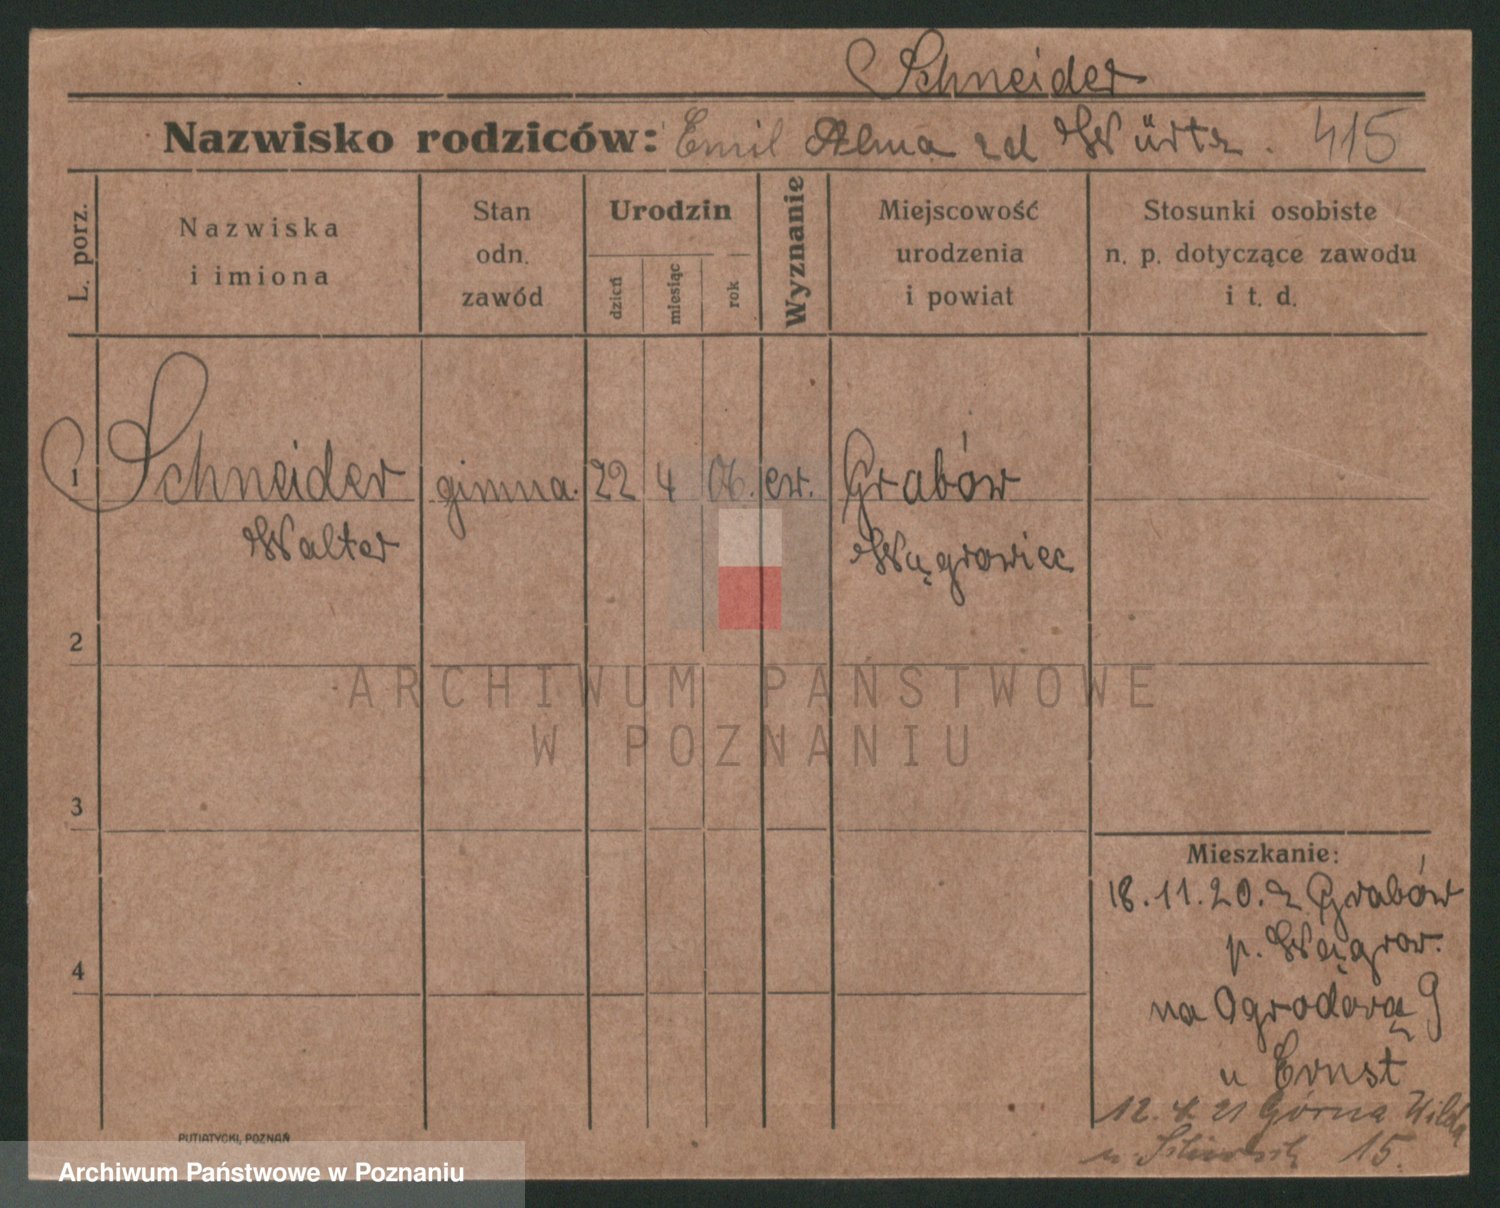 Schneider
Nazwisko rodziców: Emil Alma zd Würtz. 415
L. porz.
Nazwiska
i imiona
Stan
odn.
zawód
Urodzin
dzień
miesiąc
rok
Wyznanie
Miejscowość
urodzenia
i powiat
Stosunki osobiste
n. p. dotyczące zawodu
i t. d.
1 Schneider gimna. 22 4 06. ew. Grabów
Walter Wągrowiec
2
ARCHIWUM PAŃSTWOWE
W POZNANIU
3
Mieszkanie:
18.11.20. z Grabów
p. Wągrow.
4
na Ogrodową 9
u Ernst
12. 4. 21 Górna Wilda
u. 15.
PUTIATYCKI, POZNAŃ
Archiwum Państwowe w Poznaniu